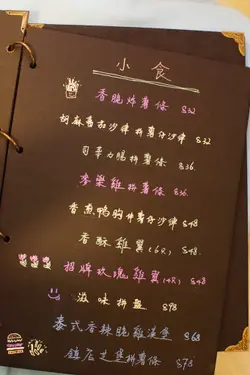 小食
香脆炸薯條 $32
胡麻番茄沙律拼薯仔沙律 $32
司華力腸拼薯條 $36
麥樂雞拼薯條 $36
香煎鴨胸拼薯仔沙律 $48
香酥雞翼(6只) $48
招牌玫瑰雞翼(4只) $48
滋味拼盤 $98
泰式香辣脆雞漢堡 $68
鎮店芝堡拼薯條 $78